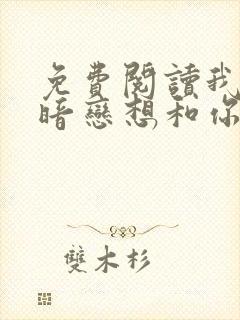 免費閱讀我
暗戀想和你
雙木杉